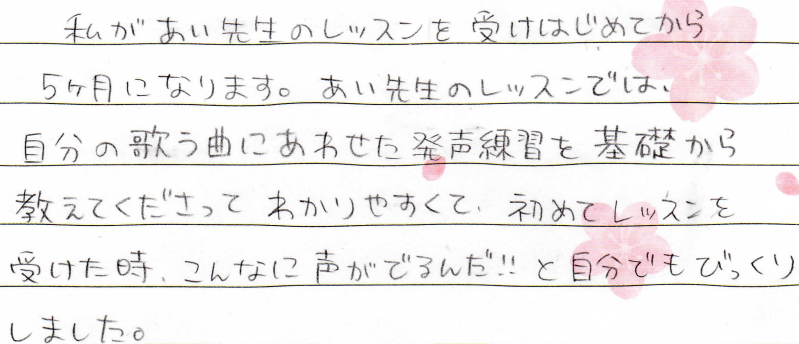 私があい先生のレッスンを受けはじめてから
5ヶ月になります。あい先生のレッスンでは、
自分の歌う曲にあわせた発声練習を基礎から
教えてくださってわかりやすくて、初めてレッスンを
受けた時、こんなに声がでるんだ!!と自分でもびっくり
しました。